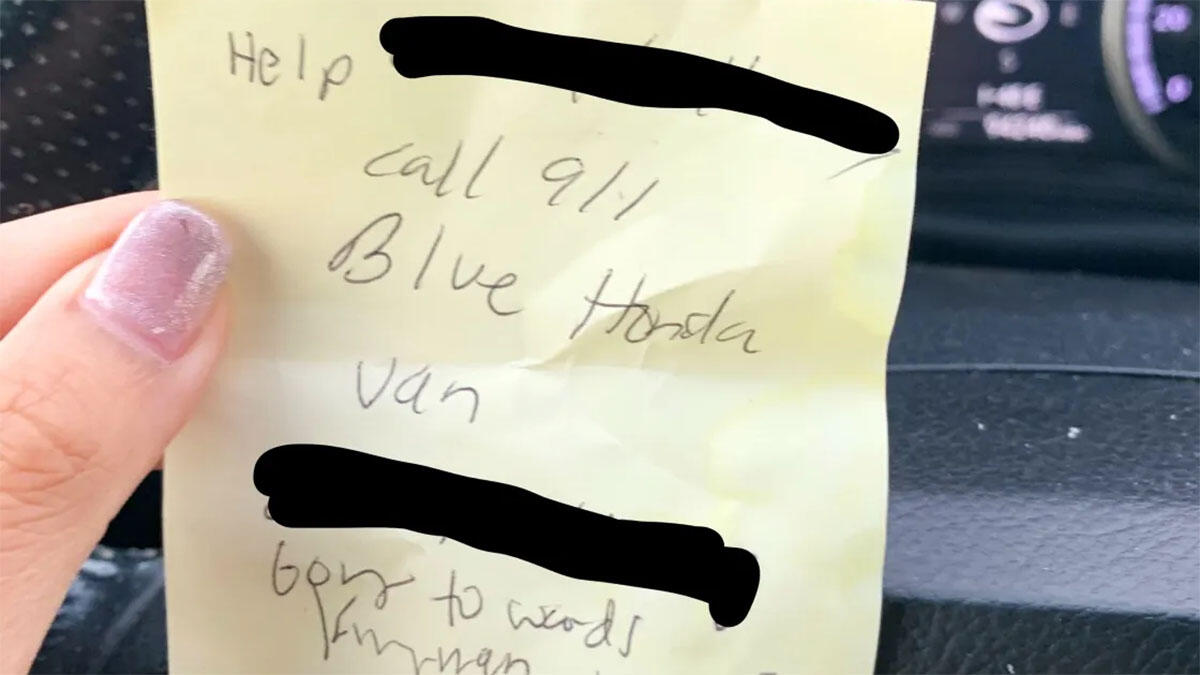 Help
call 911
Blue Honda
van
Going to woods
20